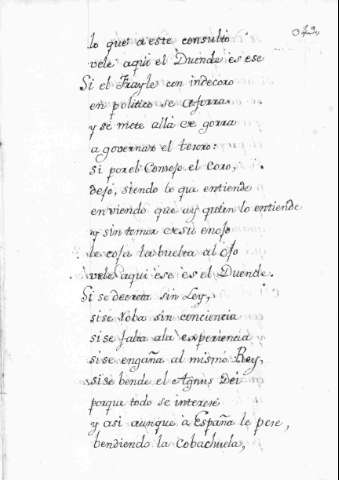 lo que a este consulto
vele aqui el Duende es ese
Si el Frayle con indecoro
en politico se aforra
y si mete allà de gorra
a governar el tesoro:
si por el Consejo el Coro,
dejo, siendo lo que entiende
en viendo que ay quien lo entiende
y sin temor de su enojo
le coja la buelta al ojo
vele aqui ese es el Duende.
Si se decreta sin Ley,
si se Roba sin conciencia
si se falta ala experiencia
si se engaña al mismo Rey,
si se bende el Agnus Dei
porque todo se interese
y asi aunque à España le pese,
bendiendo la Cobachuela,